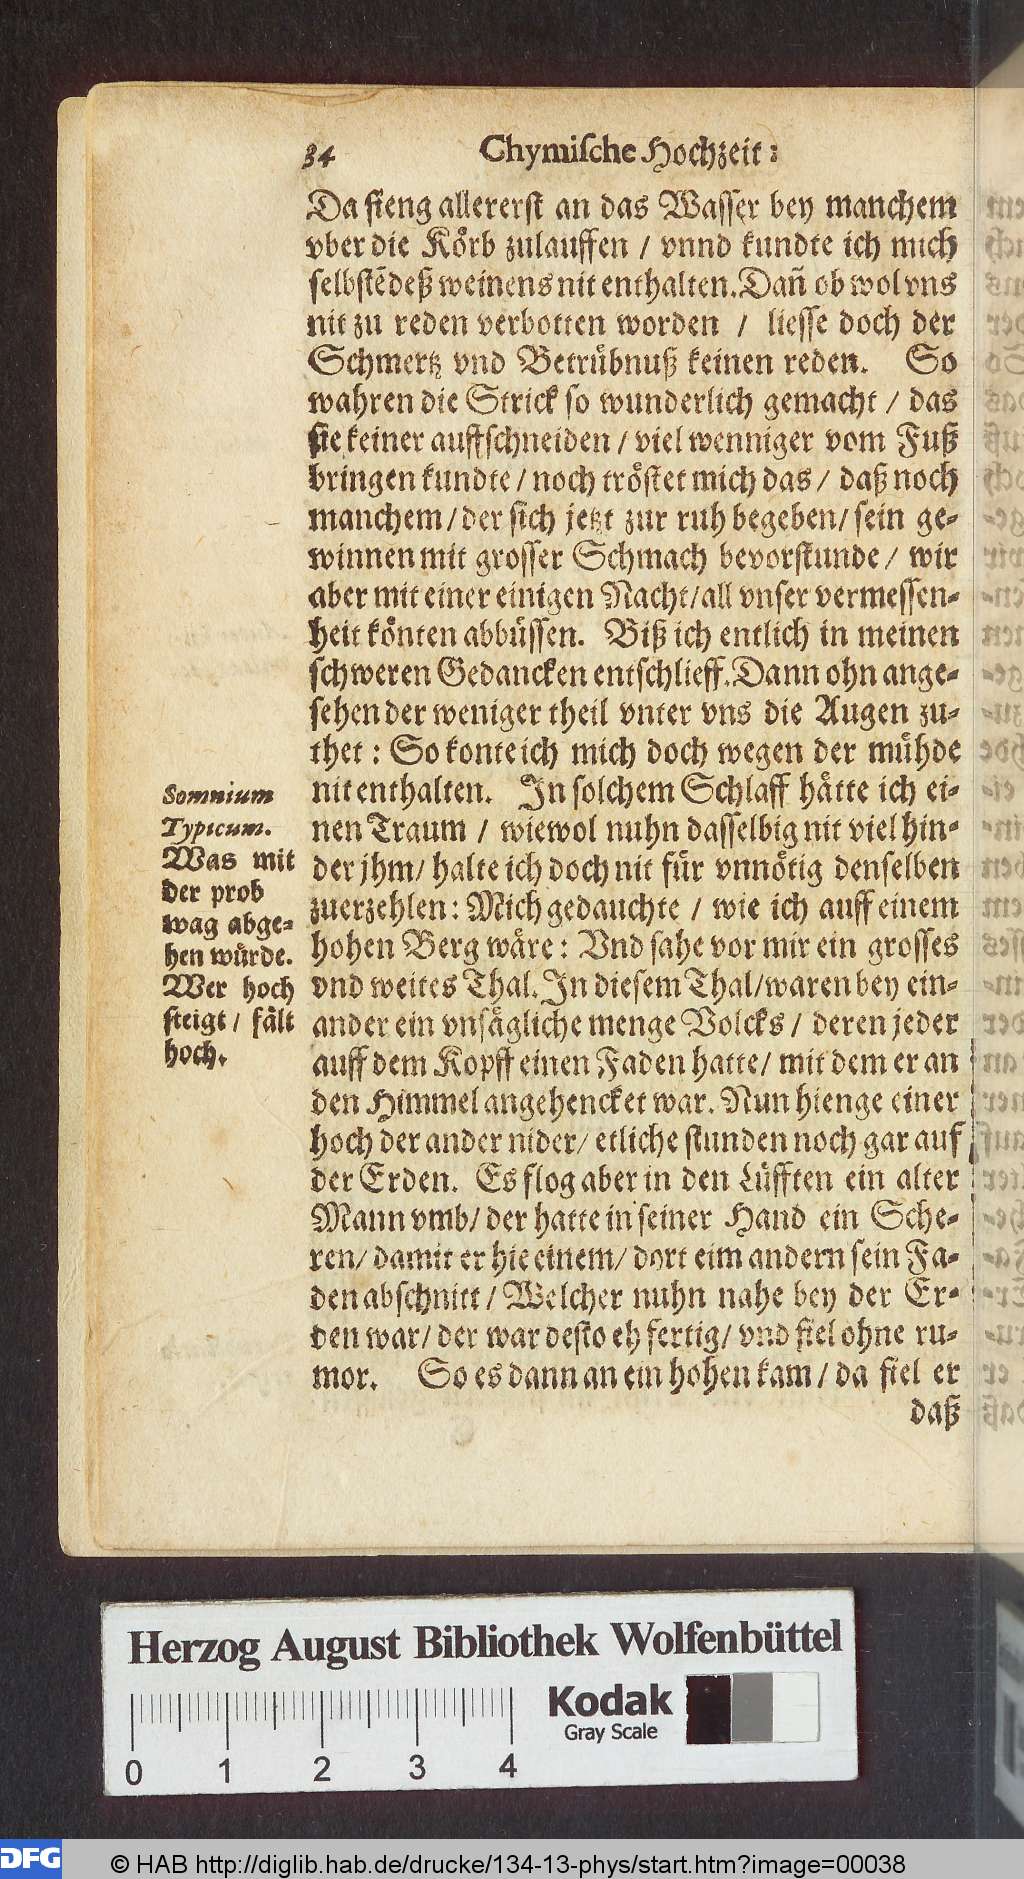 34 Chymische Hochzeit:
Da fieng allererst an das Wasser bey manchem
vber die Körb zulauffen / vnnd kundte ich mich
selbstẽ deß weinens nit enthalten. Dañ ob wol vns
nit zu reden verbotten worden / liesse doch der
Schmertz vnd Betrübnuß keinen reden. So
wahren die Strick so wunderlich gemacht / das
sie keiner auffschneiden / viel wenniger vom Fuß
bringen kundte / noch tröstet mich das / daß noch
manchem / der sich jetzt zur ruh begeben / sein ge-
winnen mit grosser Schmach bevorstunde / wir
aber mit einer einigen Nacht / all vnser vermessen-
heit könten abbüssen. Biß ich entlich in meinen
schweren Gedancken entschlieff. Dann ohn ange-
sehen der weniger theil vnter vns die Augen zu-
thet: So konte ich mich doch wegen der mühde
nit enthalten. In solchem Schlaff hätte ich ei-
nen Traum / wiewol nuhn dasselbig nit viel hin-
der jhm / halte ich doch nit für vnnötig denselben
zuerzehlen: Mich gedauchte / wie ich auff einem
hohen Berg wäre: Vnd sahe vor mir ein grosses
vnd weites Thal. In diesem Thal / waren bey ein-
ander ein vnsägliche menge Volcks / deren jeder
auff dem Kopff einen Faden hatte / mit dem er an
den Himmel angehencket war. Nun hienge einer
hoch der ander nider / etliche stunden noch gar auf
der Erden. Es flog aber in den Lüfften ein alter
Mann vmb / der hatte in seiner Hand ein Sche-
ren / damit er hie einem / dort eim andern sein Fa-
den abschnitt / Welcher nuhn nahe bey der Er-
den war / der war desto eh fertig / vnd fiel ohne ru-
mor. So es dann an ein hohen kam / da fiel er
daß
Somnium
Typicum.
Was mit
der prob
wag abge-
hen würde.
Wer hoch
steigt / fält
hoch.
Herzog August Bibliothek Wolfenbüttel
Kodak
Gray Scale
0 1 2 3 4
DFG
© HAB http://diglib.hab.de/drucke/134-13-phys/start.htm?image=00038